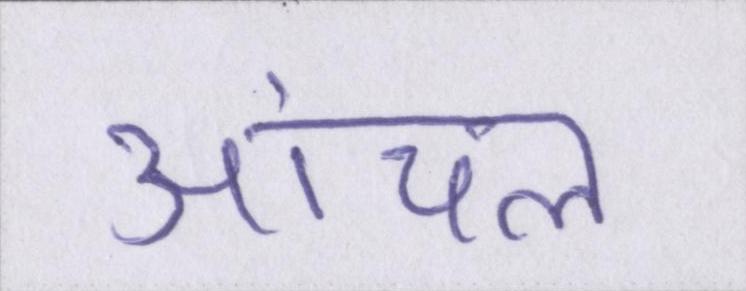 आंचल